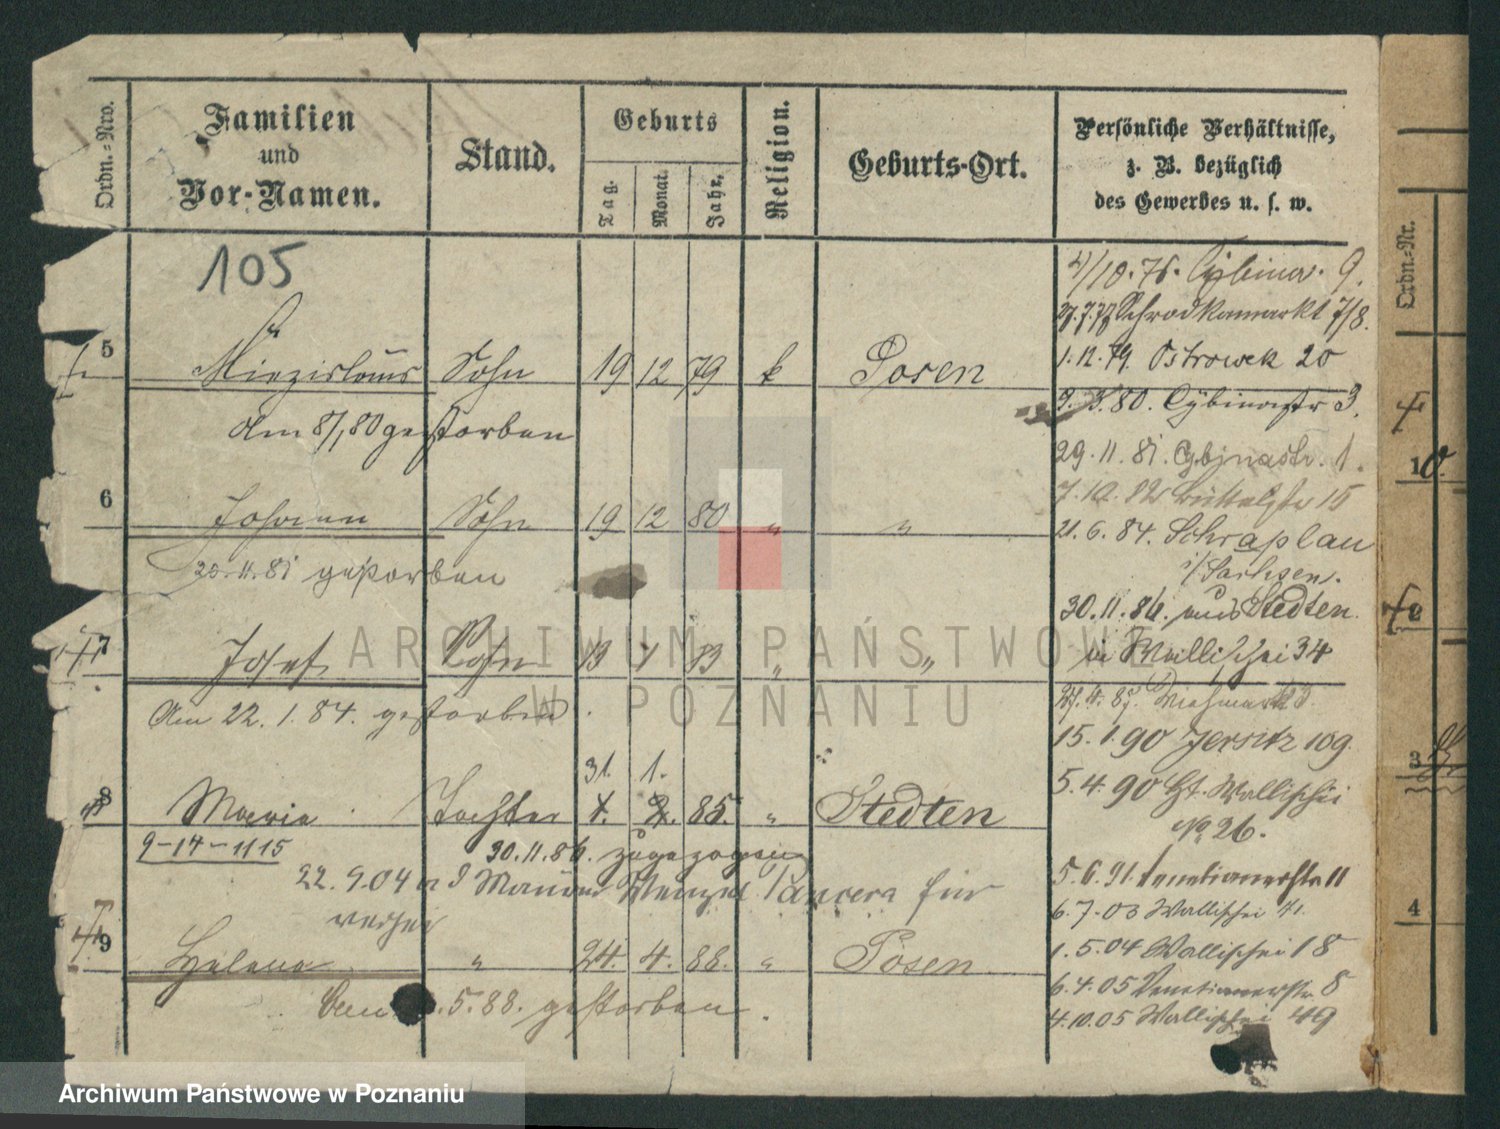 Ordn.-Nro.
Familien
und
Vor-Namen.
Stand.
Geburts
Tag.
Monat.
Jahr.
Religion.
Geburts-Ort.
Persönliche Verhältnisse,
z. B. bezüglich
des Gewerbes u. s. w.
Ordn.-Nr.
105
4/10.76. Cybina. 9.
27.7.77 Schrodkamarkt 7/8.
5 Miezislaus Sohn 19 12 79 k Posen
1.12.79. Ostrowek 20
9.3.80. Cybinastr 3.
Am 8/1 80 gestorben
29.11.81. Cybinastr. 1.
10.
6 Johann Sohn 19 12 80 " "
7.10.82 15
21.6.84. Schraplau
i/Sachsen.
20.11.81 gestorben
30.11.86. aus Stedten
2
7 Josef Sohn 13 1 83 " "
in Wallischei 34
Am 22.1.84. gestorben.
15.1.90 Jersitz 109.
31. 1.
3
8 Maria Tochter 1. 2. 85. " Stedten
5.4.90 Gt. Wallischei
No. 26.
9-14-1115
30.11.86. zugezogen
22.9.04 für
5.6.91. Venetianerstr 11
6.7.03 Wallischei 41.
4
9 Helena " 24. 4. 88. " Posen
1.5.04 Wallischei 18
6.4.05 Venetianerstr. 8
.5.88. gestorben.
4.10.05 Wallischei 49
ARCHIWUM PAŃSTWOWE
W POZNANIU
Archiwum Państwowe w Poznaniu